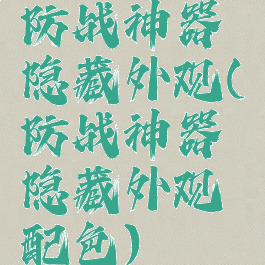 防战神器
隐藏外观(
防战神器
隐藏外观
配色)